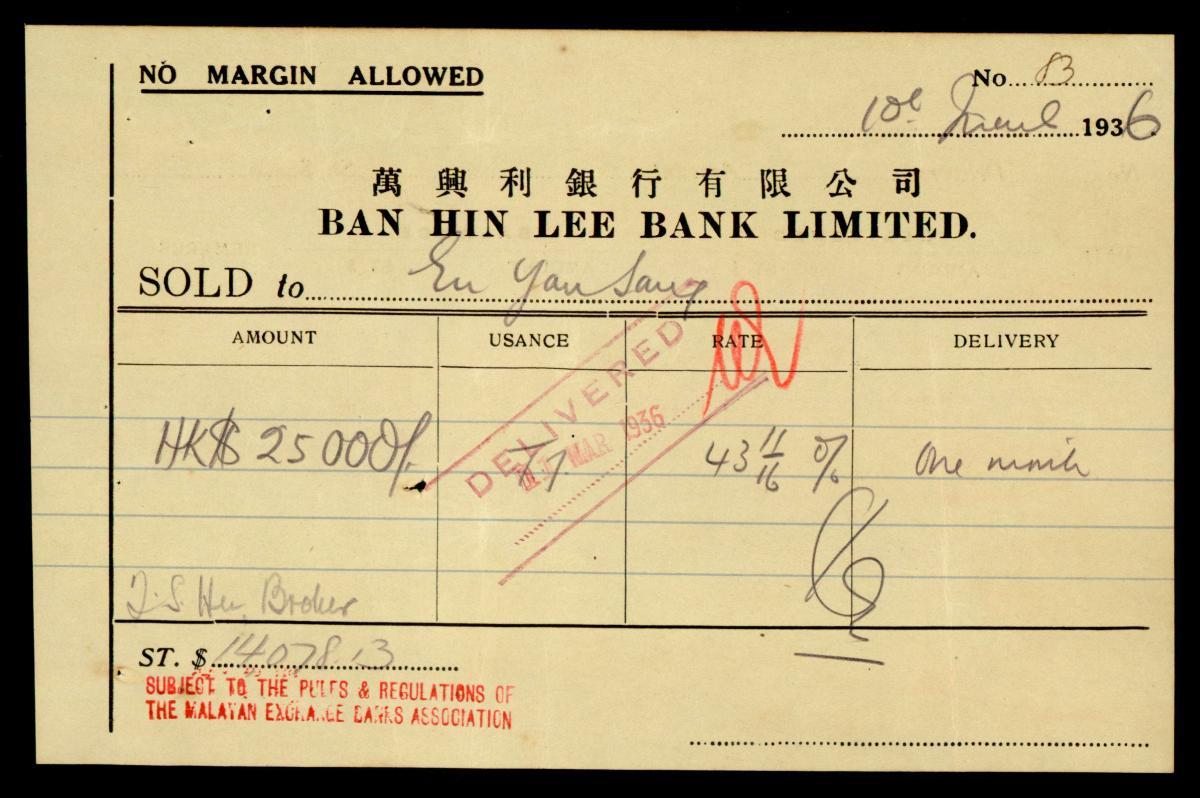 NO MARGIN ALLOWED
No. 13
10th March 1936
萬興利銀行有限公司
BAN HIN LEE BANK LIMITED.
SOLD to Eu Yan Sang
AMOUNT USANCE RATE DELIVERY
DELIVERED
11 MAR 1936
HK$ 25000/. T/T 43 11/16 % One month
Broker
ST. $ 14078.13
SUBJECT TO THE RULES & REGULATIONS OF
THE MALAYAN EXCHANGE BANKS ASSOCIATION